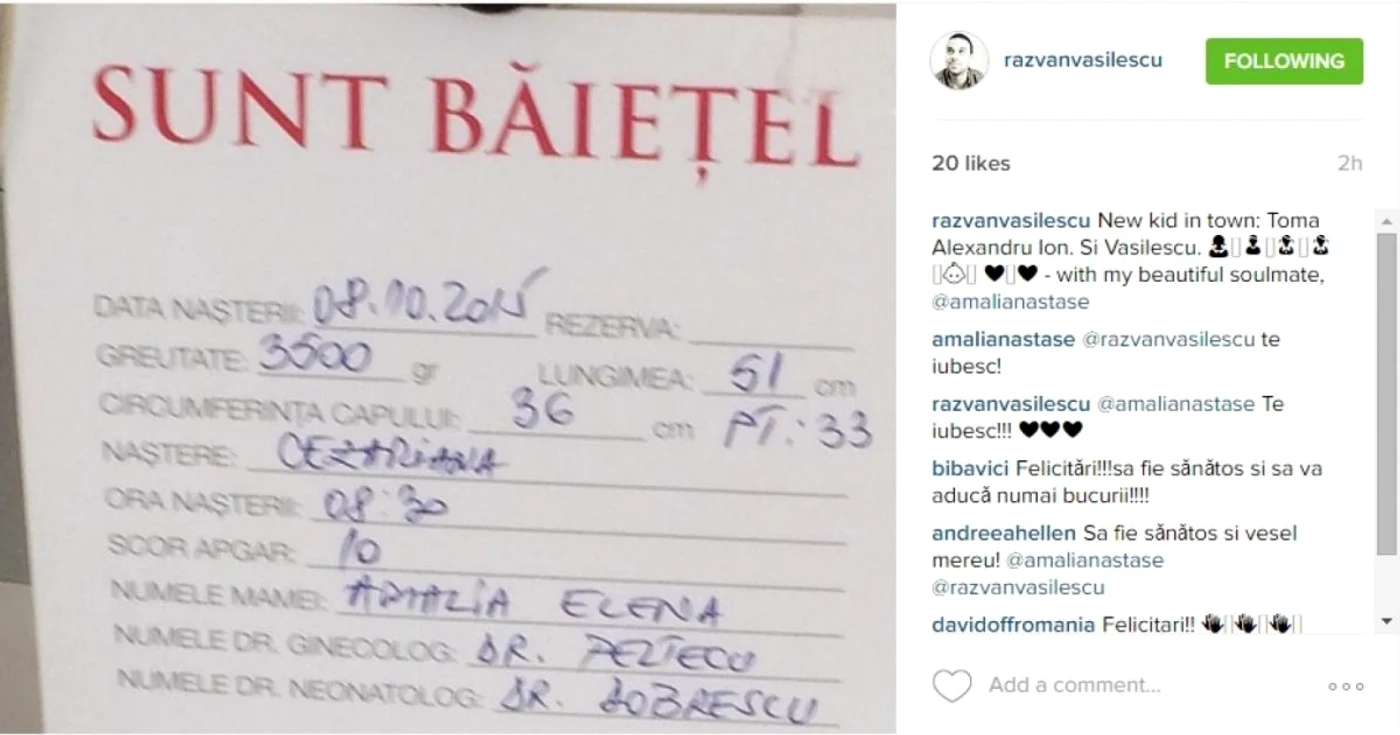 SUNT BĂIEȚEL
DATA NAȘTERII: 08.10.2015 REZERVA:
GREUTATE: 3500 gr LUNGIMEA: 51 cm
CIRCUMFERINȚA CAPULUI: 36 cm PT.: 33
NAȘTERE: CEZARIANA
ORA NAȘTERII: 08:30
SCOR APGAR: 10
NUMELE MAMEI: AMALIA ELENA
NUMELE DR. GINECOLOG: DR.
NUMELE DR. NEONATOLOG: DR. DOBRESCU
razvanvasilescu FOLLOWING
20 likes 2h
razvanvasilescu New kid in town: Toma
Alexandru Ion. Si Vasilescu.
- with my beautiful soulmate,
@amalianastase
amalianastase @razvanvasilescu te
iubesc!
razvanvasilescu @amalianastase Te
iubesc!!! ♥♥♥
bibavici Felicitări!!!sa fie sănătos si sa va
aducă numai bucurii!!!!
andreeahellen Sa fie sănătos si vesel
mereu! @amalianastase
@razvanvasilescu
davidoffromania Felicitari!!
Add a comment...